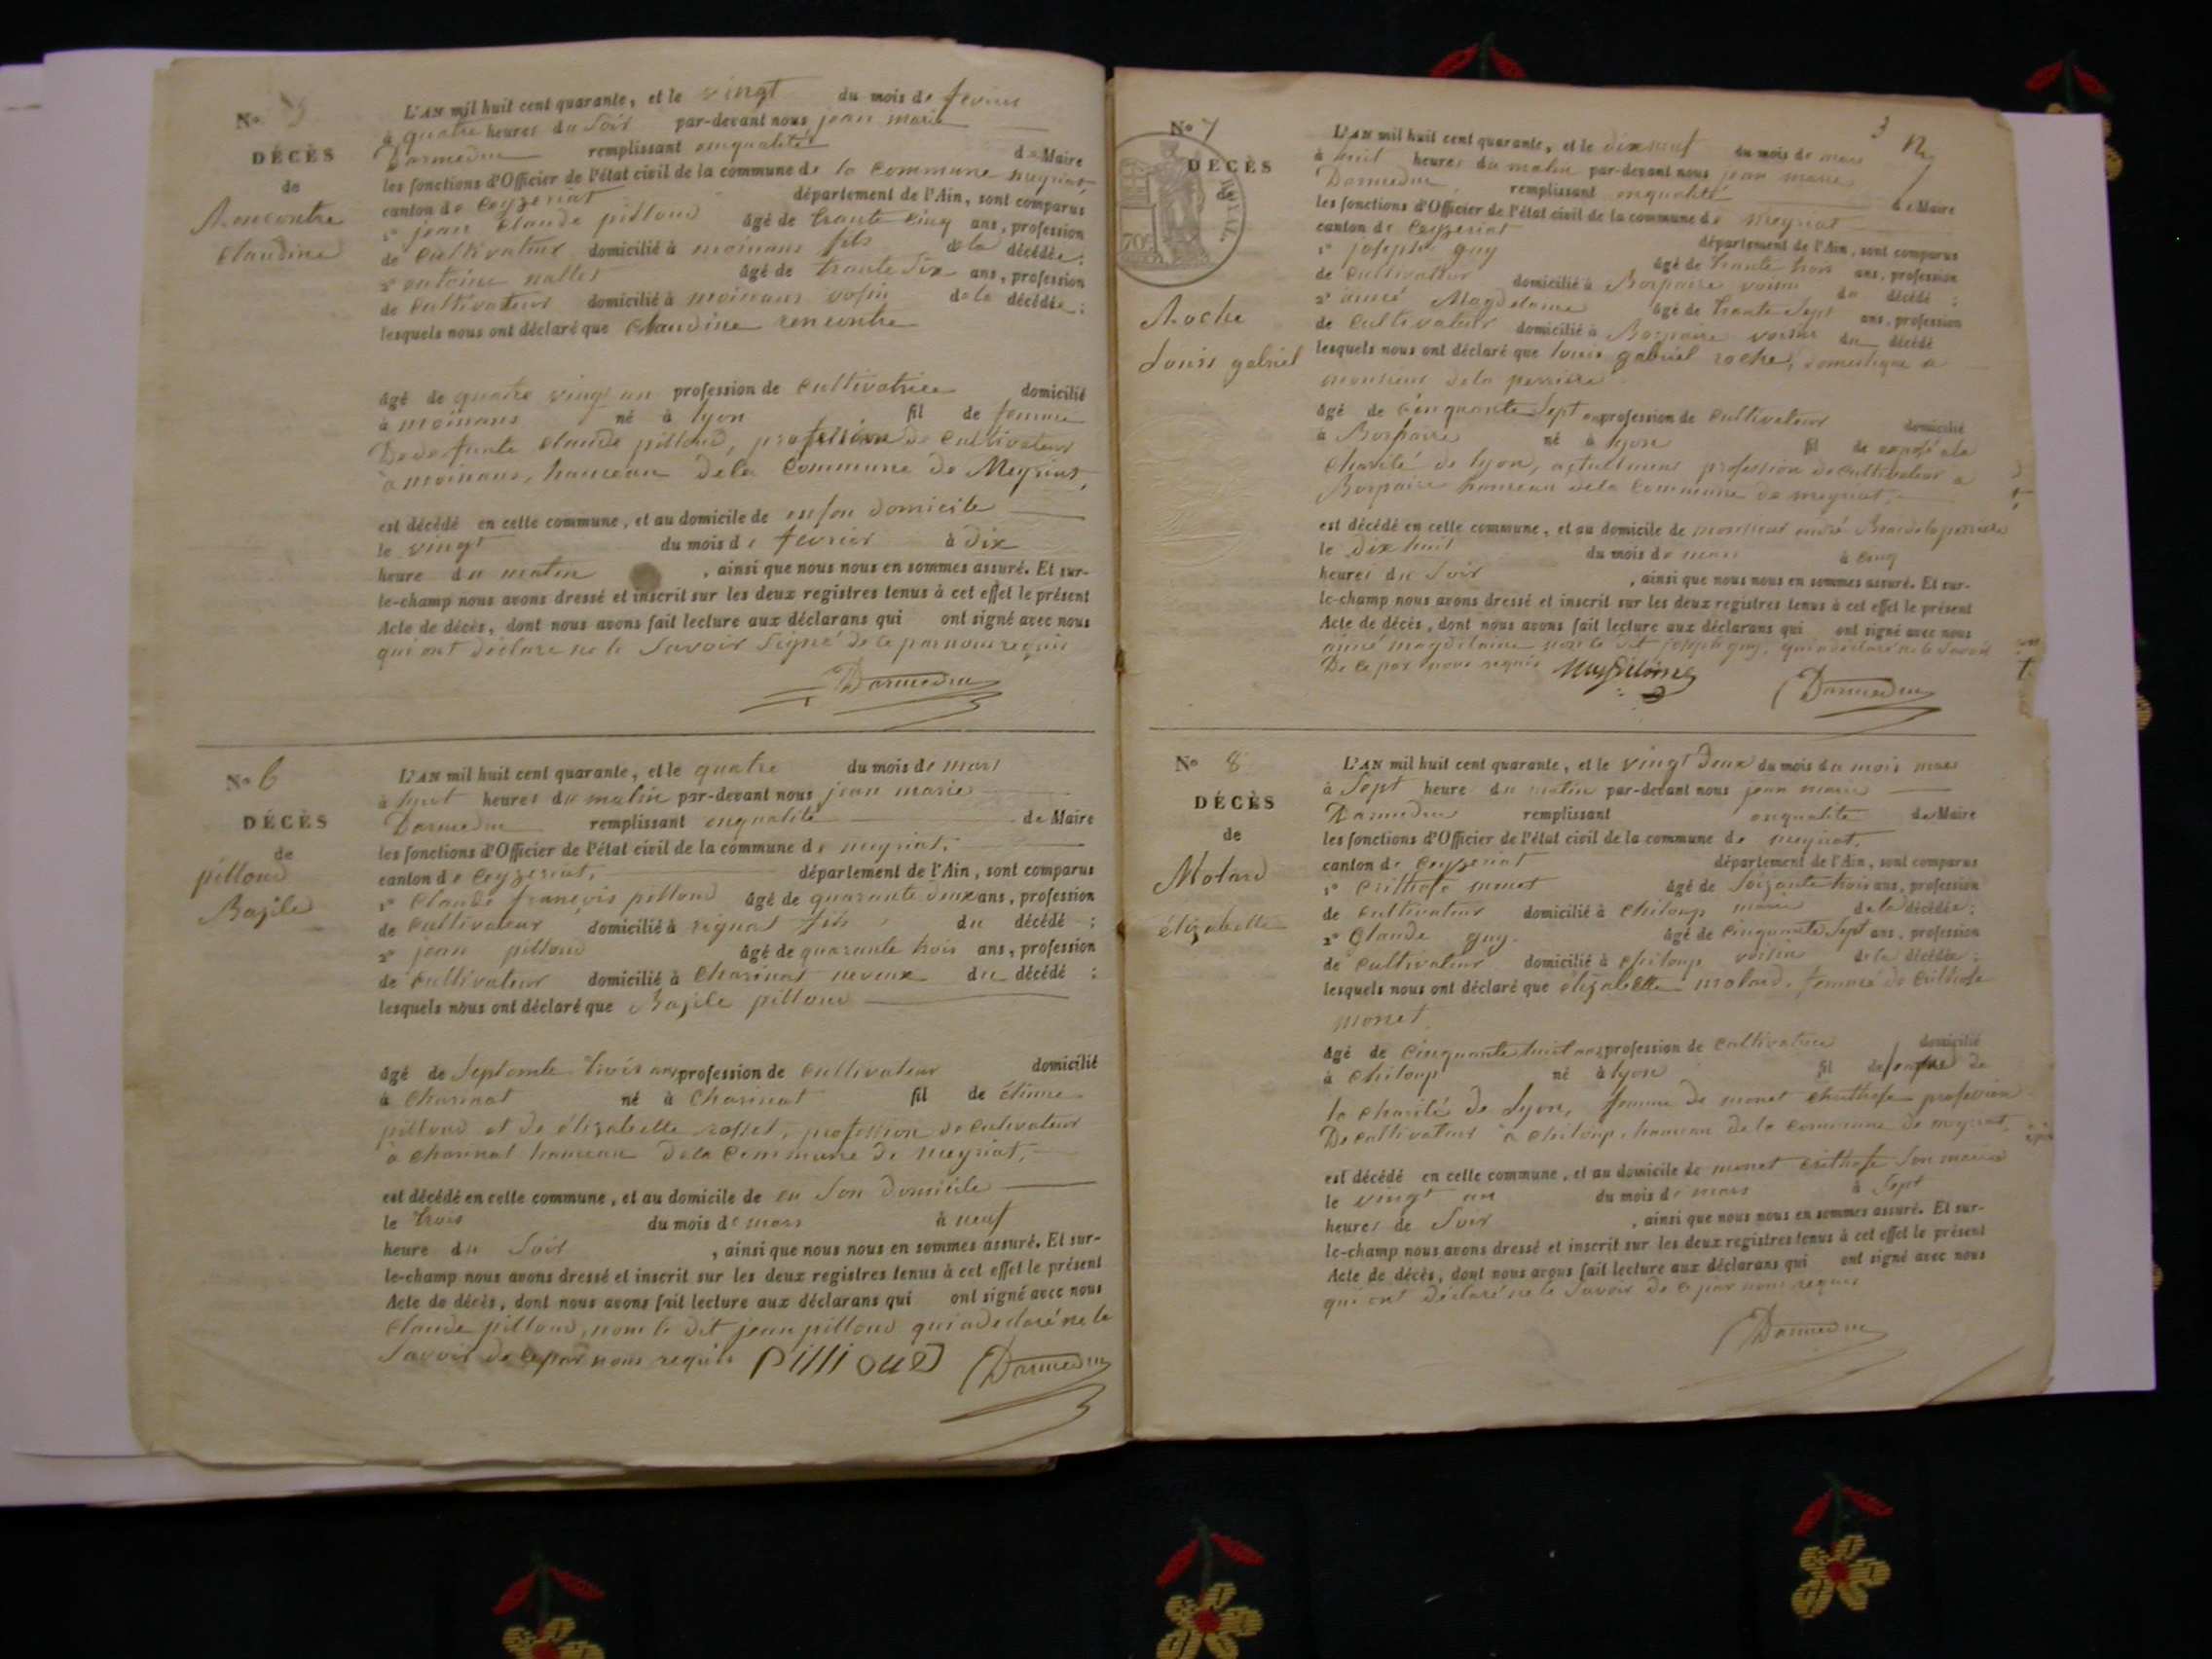 No 5
DÉCÈS
de
Rencontre
Claudine
L'AN mil huit cent quarante, et le vingt du mois de fevrier
à quatre heures du Soir par-devant nous jean marie
Darmedin remplissant enqualité de Maire
les fonctions d'Officier de l'état civil de la commune de la commune meyriat,
canton de Ceyzeriat département de l'Ain, sont comparus
1° jean Claude pilloud âgé de trante Cinq ans, profession
de Cultivateur domicilié à moinans fils de la décédée;
2° antoine nallet âgé de trante Six ans, profession
de Cultivateur domicilié à moinans voisin de la décédée;
lesquels nous ont déclaré que Claudine rencontre
âgé de quatre vingt un profession de Cultivatrice domicilié
à moinans né à lyon fil de femme
De defunte Claude pilloud, profession de Cultivateur
a moinans, hameau dela Commune de Meyriat,
est décédé en cette commune, et au domicile de en son domicile
le vingt du mois de fevrier à dix
heure du matin , ainsi que nous nous en sommes assuré. Et sur-
le-champ nous avons dressé et inscrit sur les deux registres tenus à cet effet le présent
Acte de décès, dont nous avons fait lecture aux déclarans qui ont signé avec nous
qui ont déclaré ne le Savoir Signé de ce par nous requis
Darmedin
No 6
DÉCÈS
de
pilloud
Bazile
L'AN mil huit cent quarante, et le quatre du mois de mars
à heures du matin par-devant nous jean marie
Darmedin remplissant enqualité de Maire
les fonctions d'Officier de l'état civil de la commune de meyriat,
canton de Ceyzeriat, département de l'Ain, sont comparus
1° Claude françois pilloud âgé de quarante deux ans, profession
de Cultivateur domicilié à rignat fils du décédé;
2° jean pilloud âgé de quarante trois ans, profession
de Cultivateur domicilié à Charinat neveux du décédé;
lesquels nous ont déclaré que Bazile pilloud
âgé de Septente trois ans profession de Cultivateur domicilié
à Charinat né à Charinat fil de étinne
pilloud et de élizabelle rosset, profession de Cultivateur
a Charinat hameau dela Commune de meyriat,
est décédé en cette commune, et au domicile de en Son Domicile
le trois du mois de mars à neuf
heure du Soir , ainsi que nous nous en sommes assuré. Et sur-
le-champ nous avons dressé et inscrit sur les deux registres tenus à cet effet le présent
Acte de décès, dont nous avons fait lecture aux déclarans qui ont signé avec nous
Claude pilloud, non le dit jean pilloud qui a declaré ne le
Savoir de ce par nous requis Pilloud Darmedin
3
No 7
DÉCÈS
de
ROYAL
Roche
Louis gabriel
L'AN mil huit cent quarante, et le dix neuf du mois de mars
à huit heures du matin par-devant nous jean marie
Darmedin remplissant enqualité de Maire
les fonctions d'Officier de l'état civil de la commune de meyriat
canton de Ceyzeriat département de l'Ain, sont comparus
1° joseph guy âgé de trante trois ans, profession
de Cultivateur domicilié à Bospaire voisin du décédé;
2° aimé Magdelaine âgé de trante Sept ans, profession
de Cultivateur domicilié à Bospaire voisin du décédé
lesquels nous ont déclaré que louis gabriel roche, domestique a
monsieur dela perriere
âgé de Cenquante Sept ans profession de Cultivateur domicilié
à Bospaire né à lyon fil de exposé ala
Charité de lyon, actullment profession de Cultivateur a
Bospaire hameau dela Commune de meyriat,
est décédé en cette commune, et au domicile de monsieur
le Dix huit du mois de mars à Cinq
heures du Soir , ainsi que nous nous en sommes assuré. Et sur-
le-champ nous avons dressé et inscrit sur les deux registres tenus à cet effet le présent
Acte de décès, dont nous avons fait lecture aux déclarans qui ont signé avec nous
aimé magdelaine non le dit joseph guy, qui a déclaré ne le Savoir
De ce par nous requis Magdelaine Darmedin
No 8
DÉCÈS
de
Molard
élizabelle
L'AN mil huit cent quarante, et le vingt Deux du mois du mois mars
à Sept heure du matin par-devant nous jean marie
Darmedin remplissant enqualité de Maire
les fonctions d'Officier de l'état civil de la commune de meyriat,
canton de Ceyzeriat département de l'Ain, sont comparus
1° Crithofe monet âgé de Soizante trois ans, profession
de Cultivateur domicilié à Chiloup marie de la décédée;
2° Claude guy. âgé de Cinquante Sept ans, profession
de Cultivateur domicilié à Chiloup voisin de la décédée;
lesquels nous ont déclaré que élizabelle molard, femme de Crithofe
monet
âgé de Cinquante huit ans profession de Cultivatrice domicilié
à Chiloup né à lyon fil de
la Charité de Lyon, femme de monet Chrithofe profession
De Cultivateur a Chiloup, hameau de la Commune de meyriat,
est décédé en cette commune, et au domicile de monet Crithofe Son marie
le vingt un du mois de mars à Sept
heures de Soir , ainsi que nous nous en sommes assuré. Et sur-
le-champ nous avons dressé et inscrit sur les deux registres tenus à cet effet le présent
Acte de décès, dont nous avons fait lecture aux déclarans qui ont signé avec nous
qui ont déclaré ne le Savoir de ce par nous requis
Darmedin